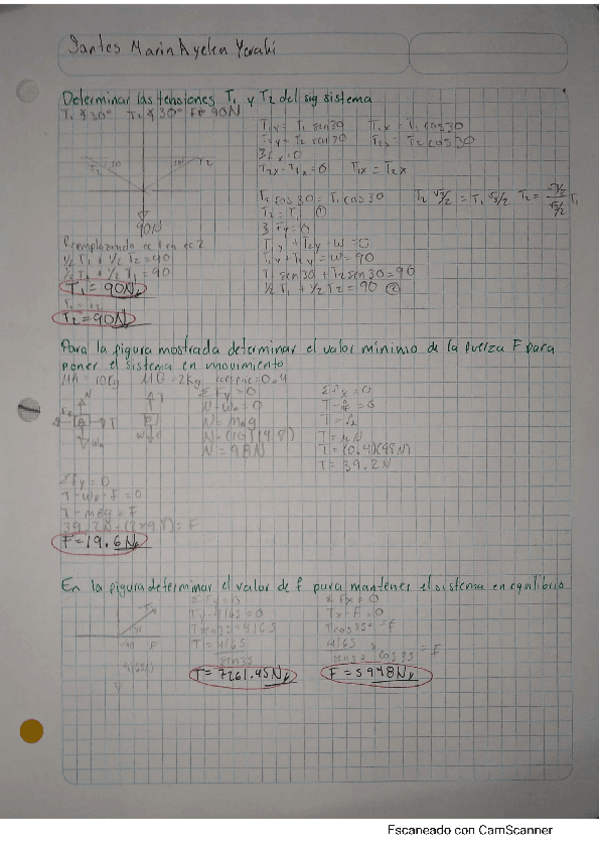 Santos Marin Ayelen Yerahi
Determinar las tensiones T₁ y T₂ del sig sistema
T₁ ∡ 30° T₂ ∡ 30° F= 90N
T₁y = T₁ sen30 T₁x = T₁ cos30
T₂y = T₂ sen30 T₂x = T₂ cos30
Σfx=0
T₂x - T₁x = 0 T₁x = T₂x
30 T₂
T₂
90N
T₂ cos30 = T₁ cos30 T₂ √3/2 = T₁ √3/2 T₂ = √3/2 / √3/2 T₁
T₂ = T₁ ①
ΣFy=0
T₁y + T₂y - w = 0
T₁y + T₂y = w = 90
T₁ sen30 + T₂ sen30 = 90
½ T₁ + ½ T₂ = 90 ②
Reemplazando ec 1 en ec 2
½ T₁ + ½ T₂ = 90
½ T₁ + ½ T₁ = 90
T₁ = 90N
T₁ = T₂
T₂ = 90N
Para la figura mostrada determinar el valor minimo de la fuerza F para
poner el sistema en movimiento
MA = 10Kg = 2Kg = 0.4
N
T
A
T
ΣFy = 0
N - wₐ = 0
N = mₐg
N = (10)(9.8)
N = 98N
ΣFx = 0
T = μN
T = (0.4)(98N)
T = 39.2N
ΣFy = 0
= F
39.2N - (2×9.8) = F
F = 19.6N
En la figura determinar el valor de f para mantener el sistema en equilibrio
ΣFy = 0
Ty - 4165 = 0
Tsen35 = 4165
T = 4165
sen35
T = 7261.45N
ΣFx = 0
Tx - F = 0
Tcos35° = F
4165
sen35 cos35 = F
F = 5948N
Escaneado con CamScanner